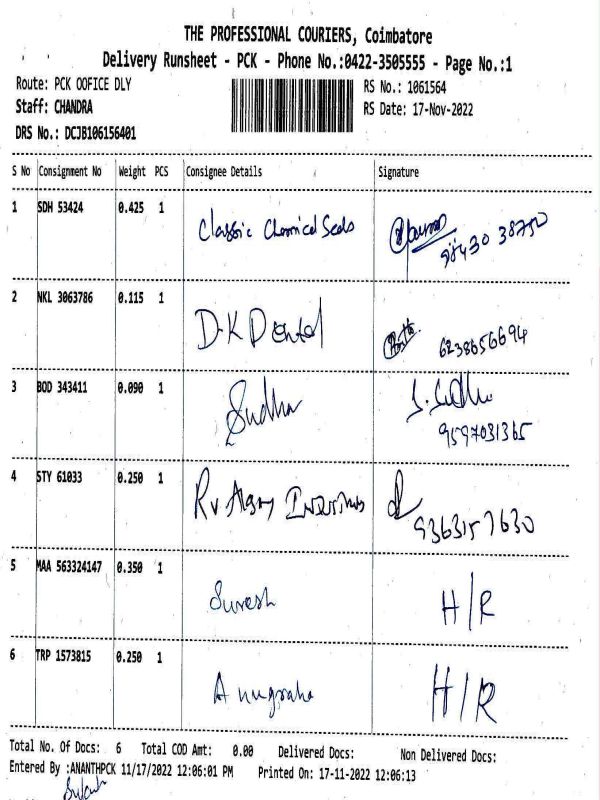 THE PROFESSIONAL COURIERS, Coimbatore
Delivery Runsheet - PCK - Phone No.:0422-3505555 - Page No.:1
Route: PCK OOFICE DLY RS No.: 1061564
Staff: CHANDRA RS Date: 17-Nov-2022
DRS No.: DCJB106156401
S No Consignment No Weight PCS Consignee Details Signature
1 SDH 53424 0.425 1
Classic Chemical Seals
98430 38750
2 NKL 3063786 0.115 1
D.K Dental 6238656694
3 BOD 343411 0.090 1
Sudha
9597031365
4 STY 61033 0.250 1
Rv
9363157630
5 MAA 563324147 0.350 1
Suresh H/R
6 TRP 1573815 0.250 1
Anugraha H/R
Total No. Of Docs: 6 Total COD Amt: 0.00 Delivered Docs: Non Delivered Docs:
Entered By :ANANTHPCK 11/17/2022 12:06:01 PM Printed On: 17-11-2022 12:06:13